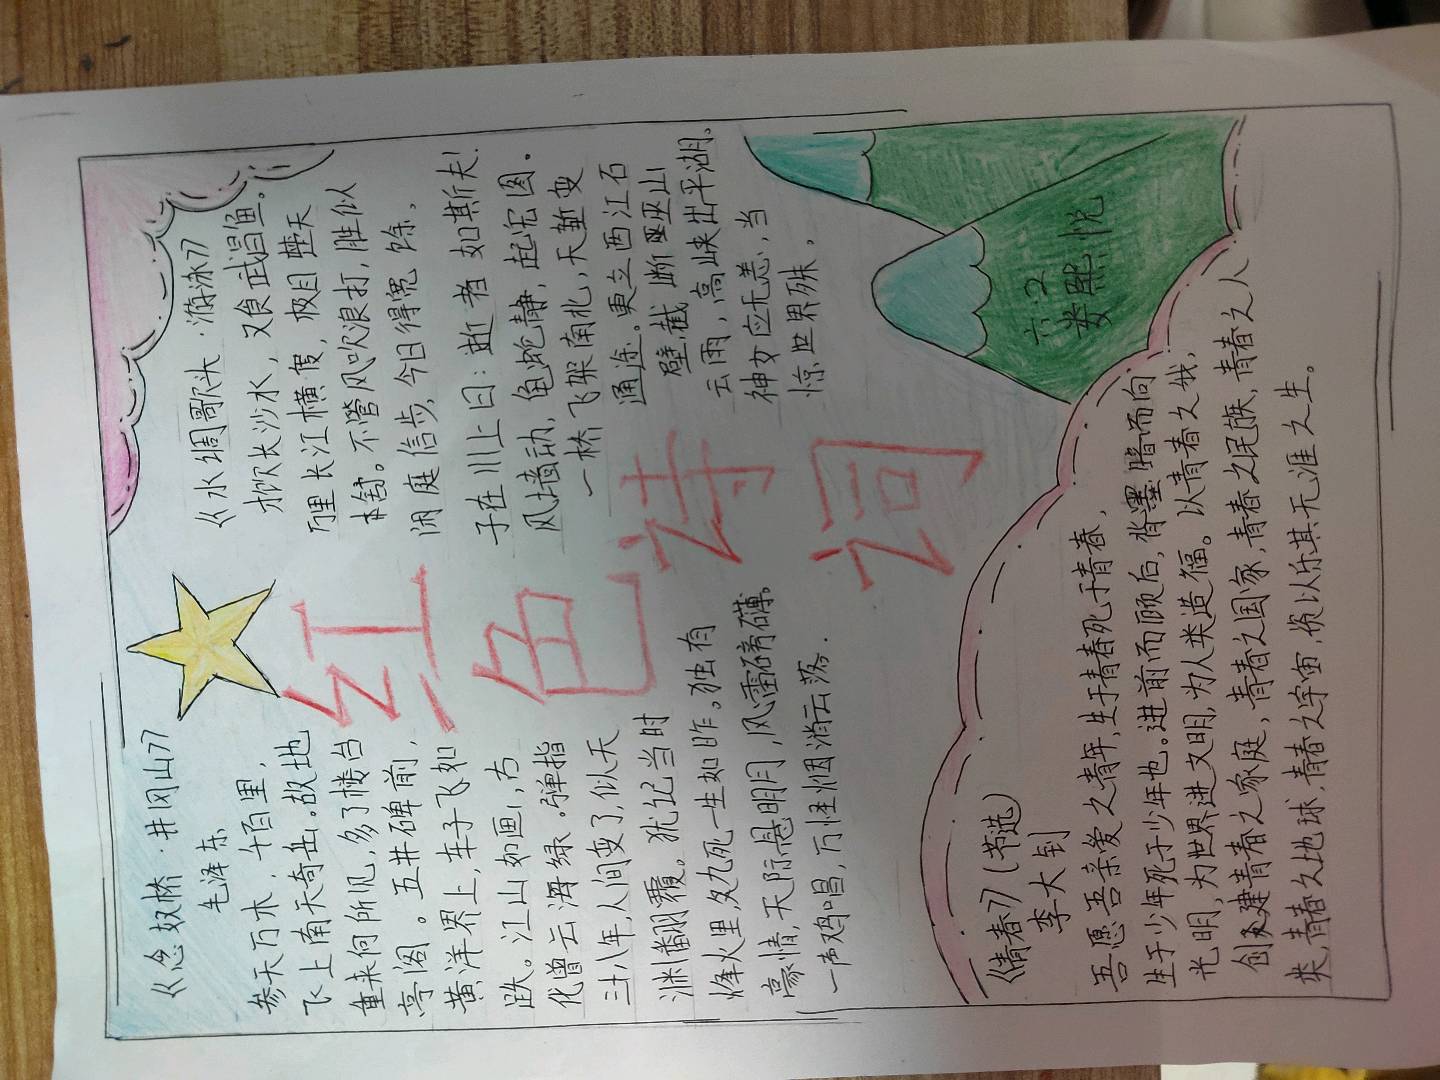 红色诗词
《念奴桥·井冈山》
毛泽东
参天万木，千百里，
飞上南天奇岳。故地
重来何所见，多了楼台
亭阁。五井碑前，
黄洋界上，车子飞如
跃。江山如画，古
代曾云海绿。弹指
三十八年，人间变了，似天
渊翻覆。犹记当时
烽火里，九死一生如昨。独有
豪情，天际悬明月，风雷磅礴。
一声鸡唱，万怪烟消云落.
《水绸歌头·游泳》
才饮长沙水，又食武昌鱼。
万里长江横度，极目楚天
舒。不管风吹浪打，胜似
闲庭信步，今日得宽馀，
子在川上曰：逝者如斯夫！
风墙动，龟蛇静，起宏图。
一桥飞架南北，天堑变
通途。更立西江石
壁，截断巫山
云雨，高峡出平湖.
神女应无恙，当
惊世界殊，
六.2
娄熙悦
《青春》（节选）
李大钊
吾愿吾亲爱之青年，生于青春死于青春，
生于少年死于少年也。进前而顾后，背墨暗而向
光明，为世界进文明，为人类造福。以青春之我，
创建青春之家庭，青春之国家，青春之民族，青春之人
类，青春之地球，青春之宇宙，资以乐其无涯之生。